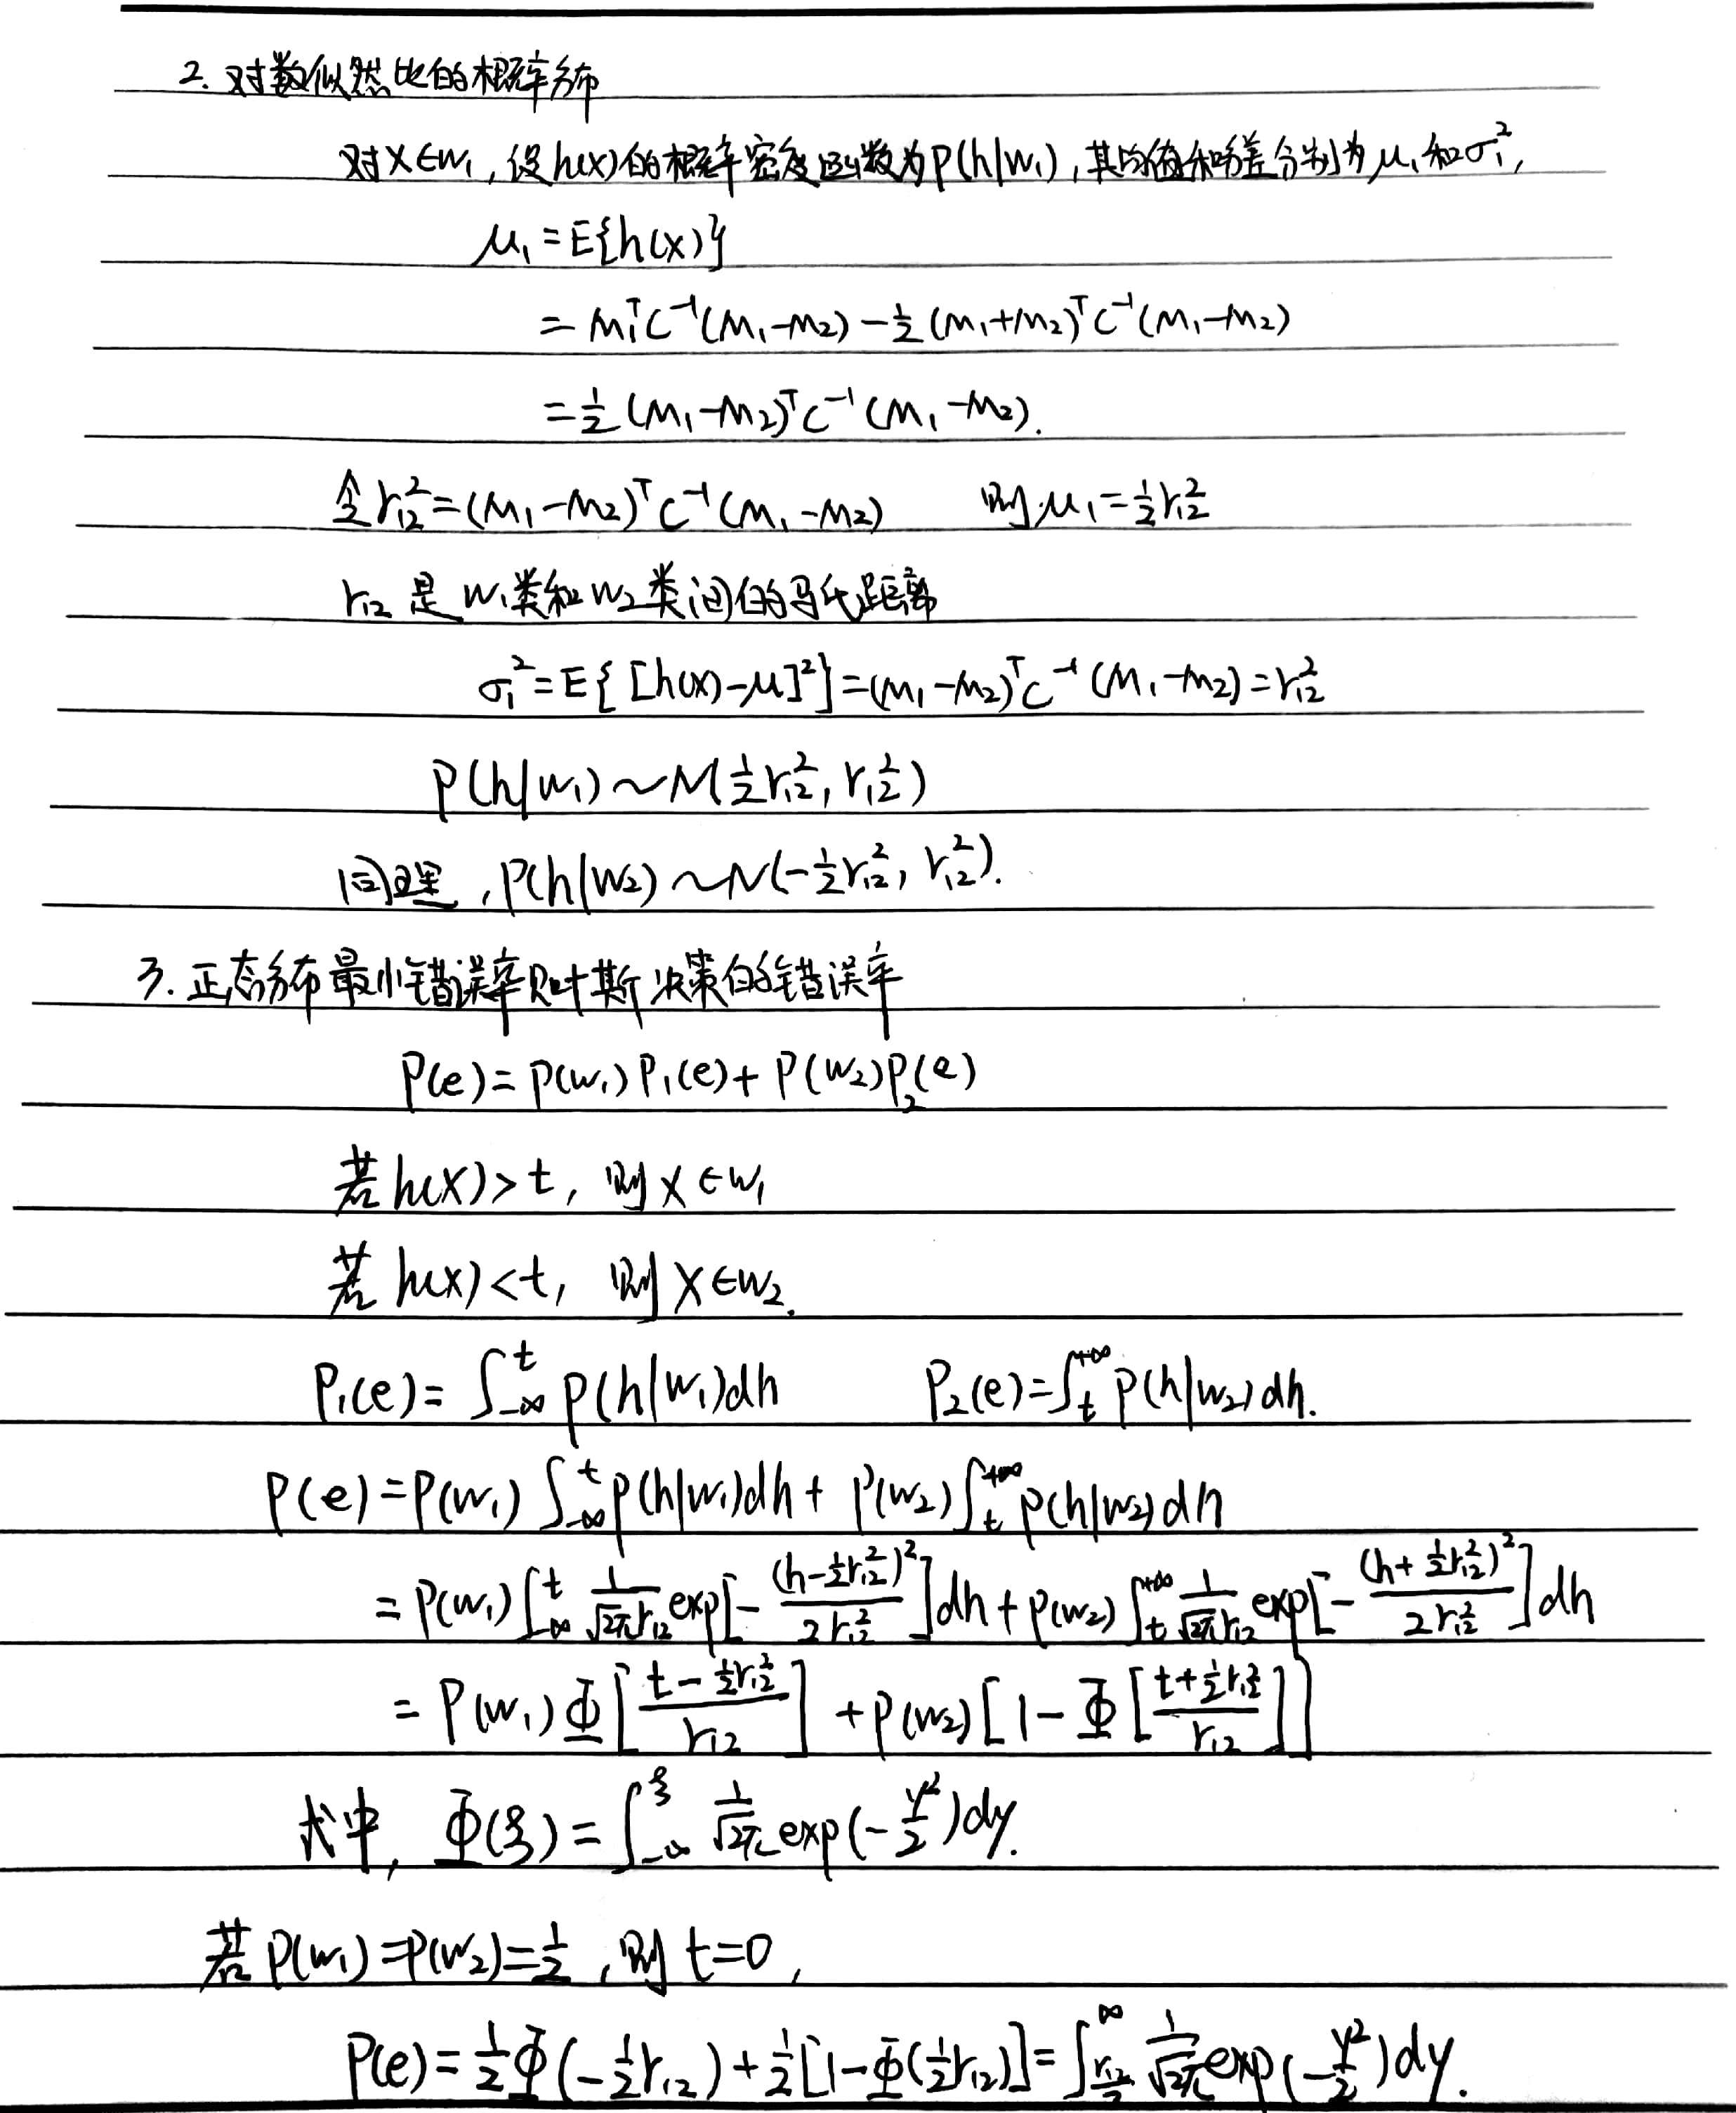 2. 对数似然比的概率分布
对X∈w₁,设h(x)的概率密度函数为P(h|w₁),其均值和方差分别为μ₁和σ₁²,
μ₁=E{h(x)}
=m₁ᵀC⁻¹(m₁-m₂)-½(m₁+m₂)ᵀC⁻¹(m₁-m₂)
=½(m₁-m₂)ᵀC⁻¹(m₁-m₂).
令r₁₂²=(m₁-m₂)ᵀC⁻¹(m₁-m₂) 则μ₁=½r₁₂²
r₁₂是w₁类和w₂类间的马氏距离
σ₁²=E{[h(x)-μ]²}=(m₁-m₂)ᵀC⁻¹(m₁-m₂)=r₁₂²
P(h|w₁)~N(½r₁₂², r₁₂²)
同理,P(h|w₂)~N(-½r₁₂², r₁₂²).
3. 正态分布最小错误率贝叶斯决策的错误率
P(e)=P(w₁)P₁(e)+P(w₂)P₂(e)
若h(x)>t, 则X∈w₁
若h(x)<t, 则X∈w₂.
P₁(e)=∫_{-∞}^{t} p(h|w₁)dh P₂(e)=∫_{t}^{+∞} p(h|w₂)dh.
P(e)=P(w₁)∫_{-∞}^{t} p(h|w₁)dh+P(w₂)∫_{t}^{+∞} p(h|w₂)dh
=P(w₁)∫_{-∞}^{t} 1/(√(2π)r₁₂) exp[-(h-½r₁₂²)²/(2r₁₂²)]dh+P(w₂)∫_{t}^{+∞} 1/(√(2π)r₁₂) exp[-(h+½r₁₂²)²/(2r₁₂²)]dh
=P(w₁)Φ[(t-½r₁₂²)/r₁₂]+P(w₂)[1-Φ[(t+½r₁₂²)/r₁₂]]
式中, Φ(ξ)=∫_{-∞}^{ξ} 1/√(2π) exp(-y²/2)dy.
若P(w₁)=P(w₂)=½,则t=0,
P(e)=½Φ(-½r₁₂)+½[1-Φ(½r₁₂)]=∫_{r₁₂/2}^{∞} 1/√(2π) exp(-y²/2)dy.